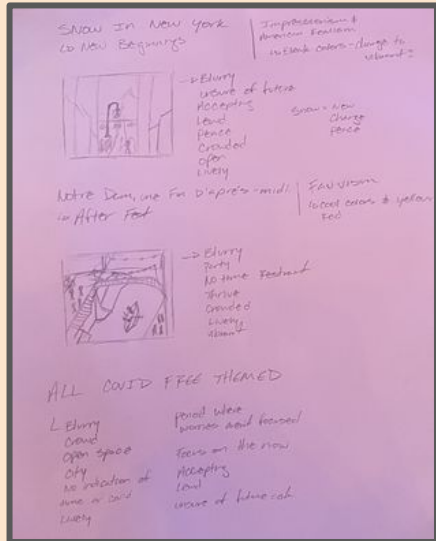 Snow In New York
↳ New Beginnings
Impressionism &
American Realism
↳ Bleak colors - change to
vibrant?
→ Blurry
unsure of future
Accepting
Lead
Peace
Crowded
Open
Lively
Snow = New
Change
Peace
Notre Dam, une Fin D'après-midi
↳ After
Fauvism
↳ cool colors & yellow
Red
→ Blurry
Party
No time
Thrive
Crowded
Lively
ALL COVID FREE THEMED
Blurry
Crowd
Open space
City
No indication of
time or covid
Lively
period where
worries aren't focused
Focus on the now
Accepting
Lead
unsure of future